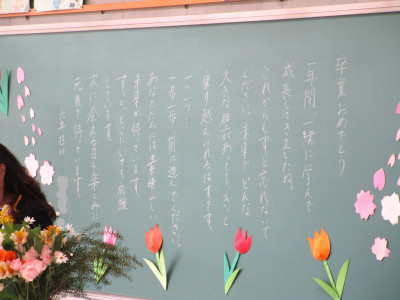 卒業おめでとう
一年間、一緒に学んで
成長してきましたね。
これからもずっと忘れないで
ください。未来で、どんな
大きな壁があっても、きっと
乗り越えられるはずです。
一つ一つ
一歩一歩、前に進んでください。
あなたたちには素晴らしい
未来が待っています。
ずっと、どこにいても応援
しています。
次に会える日を楽しみに
元気で待っています。
六年担任